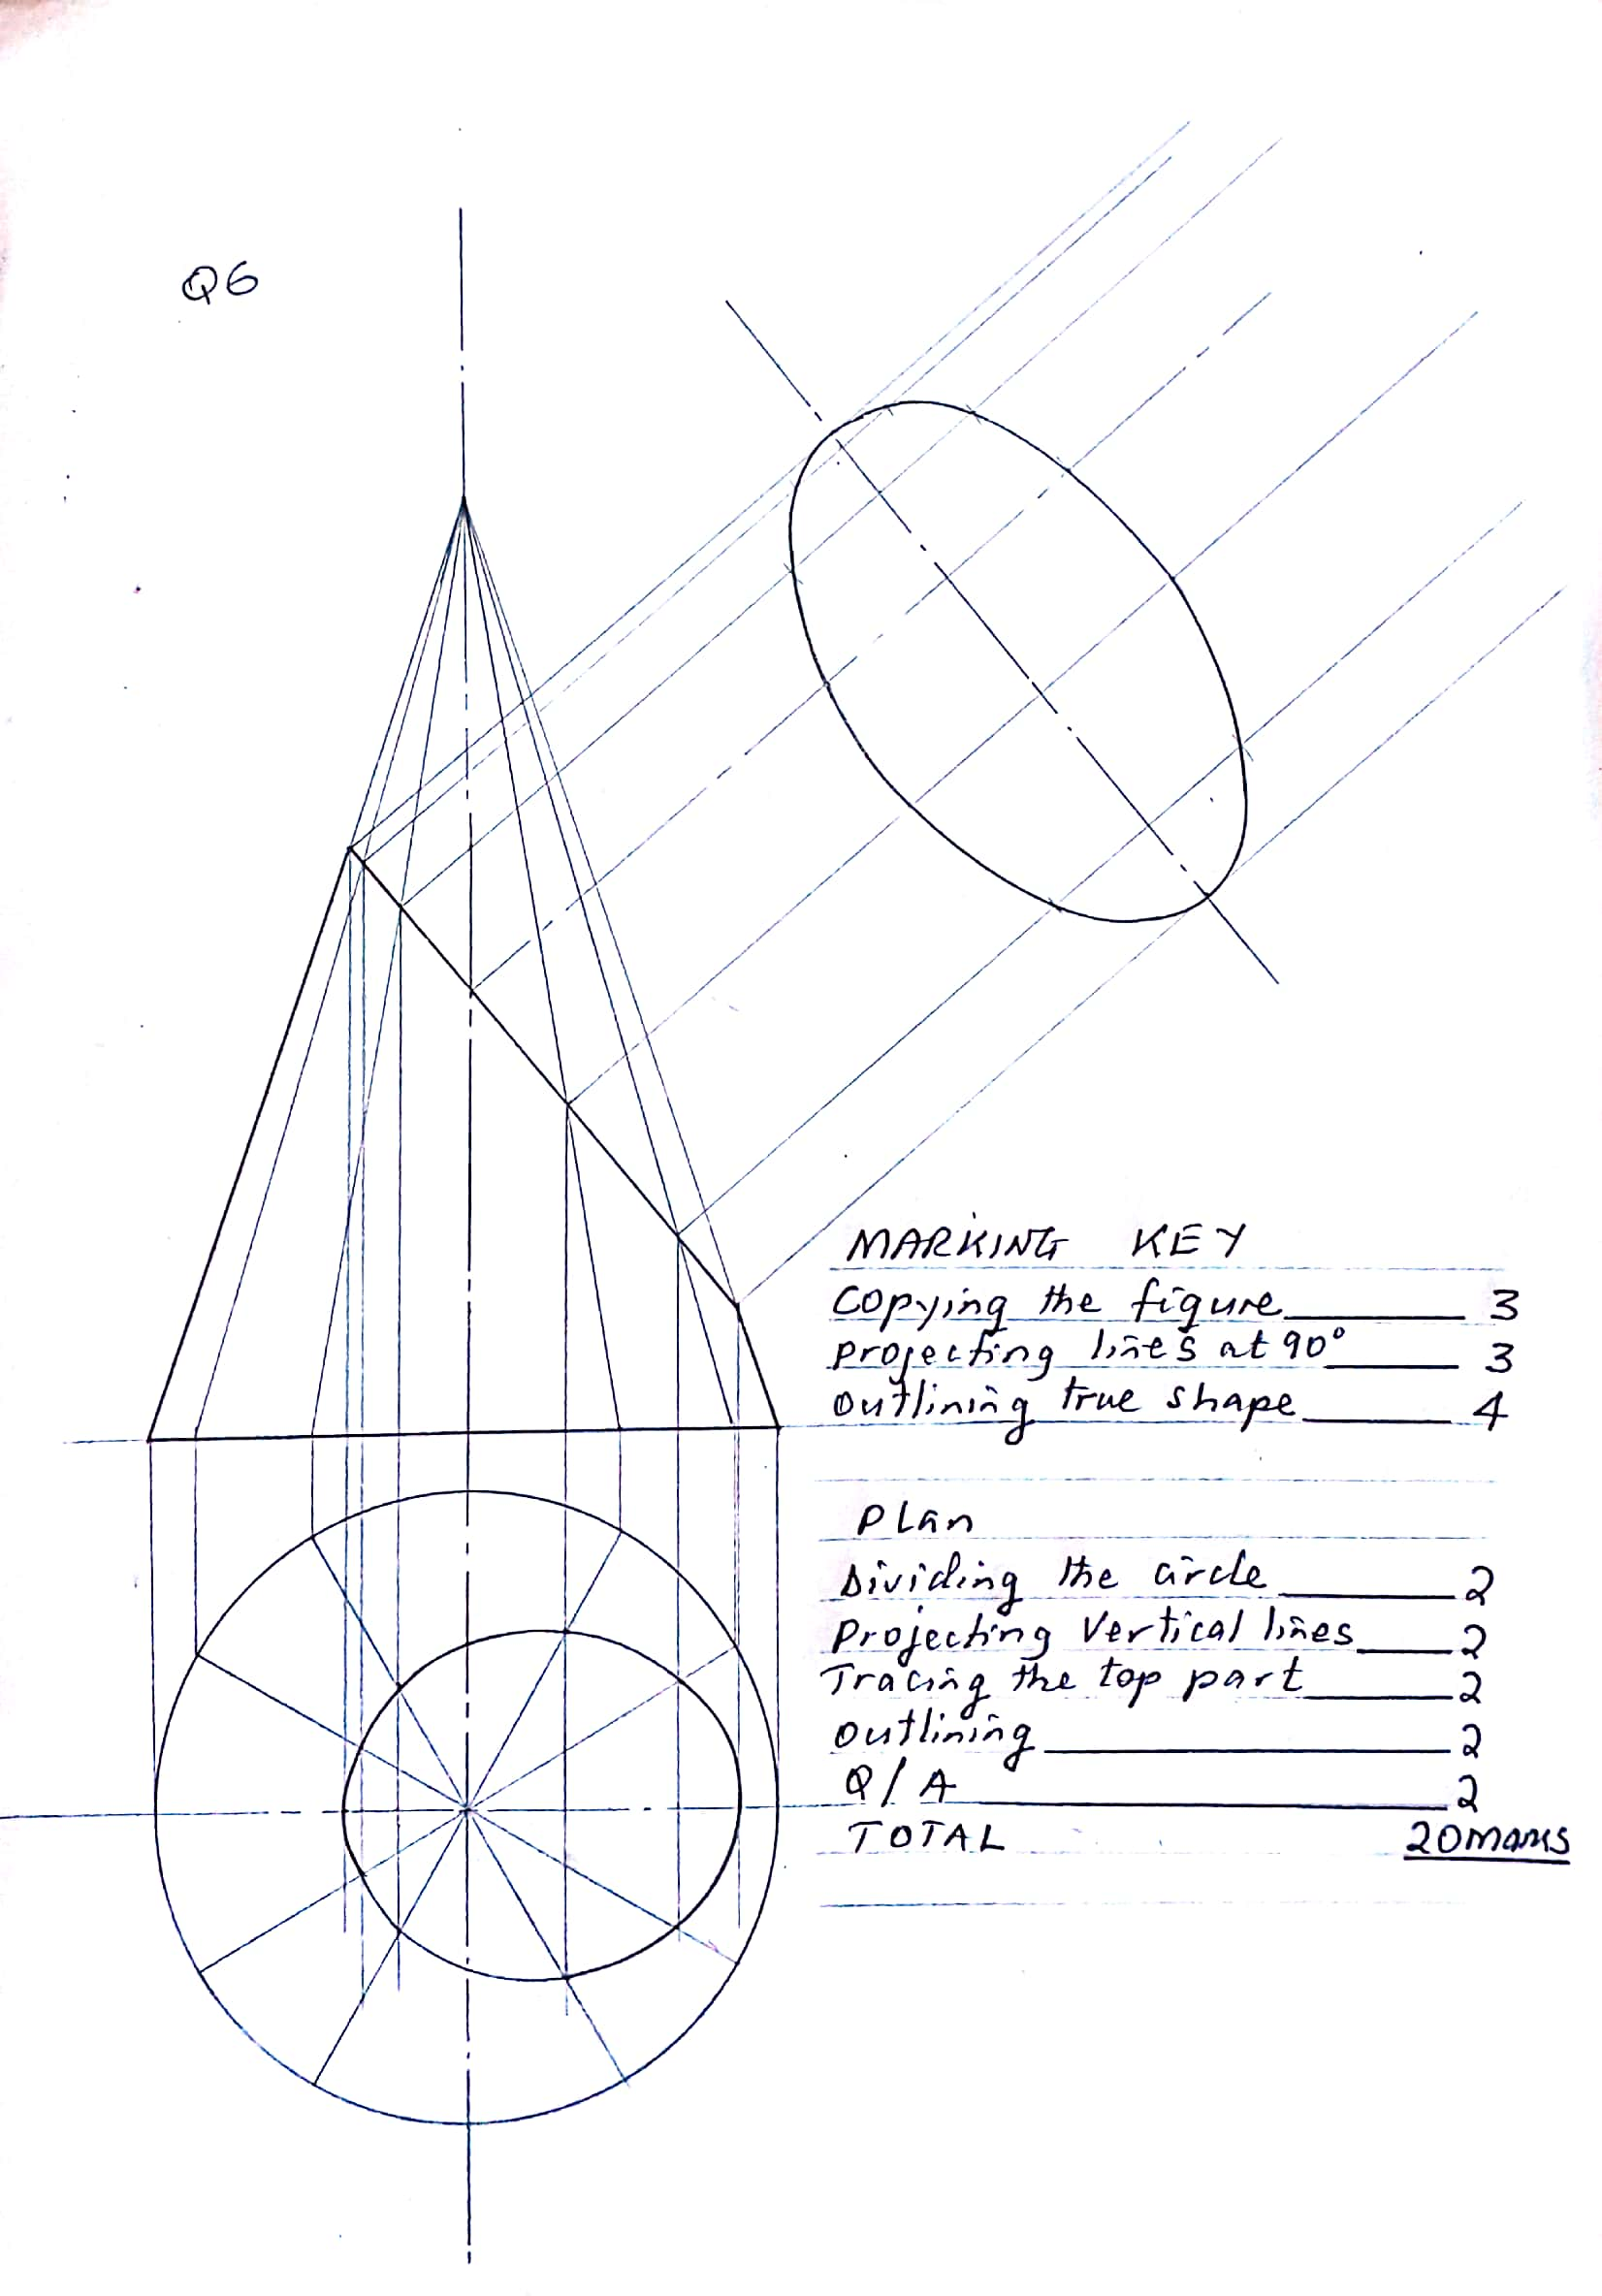 Q6
MARKING KEY
Copying the figure 3
projecting lines at 90° 3
outlining true shape 4
PLan
Dividing the circle 2
Projecting Vertical lines 2
Tracing the top part 2
outlining 2
Q/A 2
TOTAL 20marks